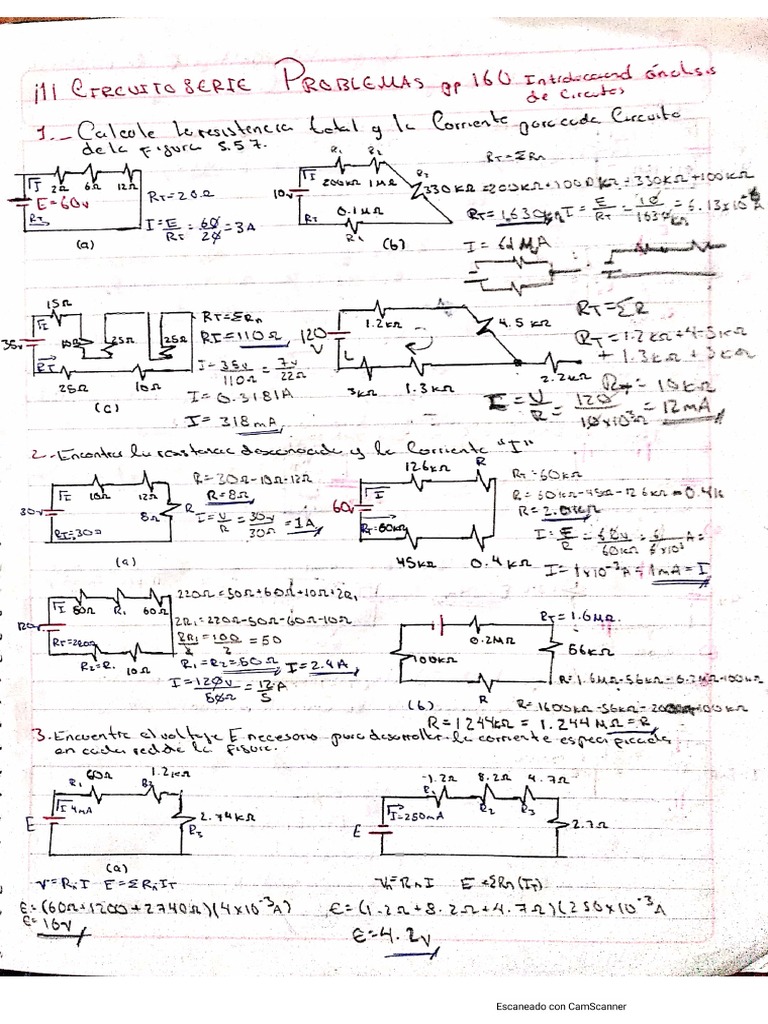 CIRCUITO SERIE PROBLEMAS pp 160 Introduccion al análisis de Circuitos
1._ Calcule la resistencia total y la Corriente para cada Circuito
de la Figura 5.57.
I 2Ω 6Ω 12Ω
E=60v
RT
RT=20Ω
I=E/RT=60/20=3A
(a)
R1 R2
I 200kΩ 1MΩ
10v
RT 0.1MΩ
(b)
RT=ΣRn
330KΩ=200KΩ+1000KΩ+330KΩ+100KΩ
RT=1,630KΩ I=E/RT=10/1630KΩ=6.13x10⁻⁶A
I=6.1 MA
15Ω
I
35v
10Ω 25Ω 25Ω
RT
25Ω 10Ω
(c)
RT=ΣRn
RT=110Ω
I=35v/110Ω=7v/22Ω
I=0.3181A
I=318mA
1.2KΩ
120V
4.5KΩ
3KΩ 1.3KΩ 2.2KΩ
RT=ΣR
RT=1.2K+4.5KΩ
+ 1.3KΩ+3KΩ
RT=10KΩ
I=V/R=120/10x10³Ω=12mA
2.-Encontrar la resistencia desconocida y la Corriente "I"
I 10Ω 12Ω
30v
8Ω R
RT=30Ω
(a)
R=30Ω-10Ω-12Ω
R=8Ω
I=V/R=30v/30Ω=1A
12.6KΩ R
I
60v
RT=60KΩ
45KΩ 0.4KΩ
RT=60KΩ
R=60KΩ-45Ω-12.6KΩ-0.4K
R=2.0KΩ
I=E/R=60v/60KΩ=6/6x10³A=
I=1x10⁻³A=1mA=I
I 50Ω R1 60Ω
120v
RT=220Ω
R2=R1 10Ω
220Ω=50Ω+60Ω+10Ω+2R1
2R1=220Ω-50Ω-60Ω-10Ω
2R1/2=100/2=50
R1=R2=50Ω I=2.4A
I=120v/50Ω=12/5A
0.2MΩ
100KΩ
56KΩ
R
(b)
RT=1.6MΩ
R=1.6MΩ-56KΩ-0.2MΩ-100KΩ
R=1600KΩ-56KΩ-200KΩ-100KΩ
R=1244KΩ=1.244MΩ=R
3. Encuentre el voltaje E necesario para desarrollar la corriente especificada
en cada red de la figura.
60Ω 1.2KΩ
R1 R2
I 4mA
E
2.74KΩ
R3
(a)
V=RnI E=ΣRnIT
E=(60Ω+1200+2740Ω)(4x10⁻³A)
E=16v
1.2Ω 8.2Ω 4.7Ω
R1 R2 R3
I=250mA
E
2.7Ω
Vn=RnI E=ΣRn(IT)
E=(1.2Ω+8.2Ω+4.7Ω)(250x10⁻³A
E=4.2v
Escaneado con CamScanner